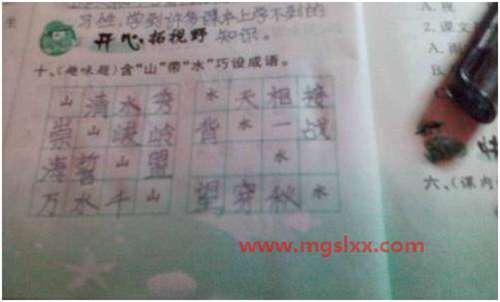 习他,学到许多课本上学不到的
开心拓视野 知识。
十、(趣味题)含“山”带“水”巧设成语。
山清水秀 水天相接
崇山峻岭 背水一战
海誓山盟 水
万水千山 望穿秋水
www.mgslxx.com
2.课文
A.
B.
六、(课内